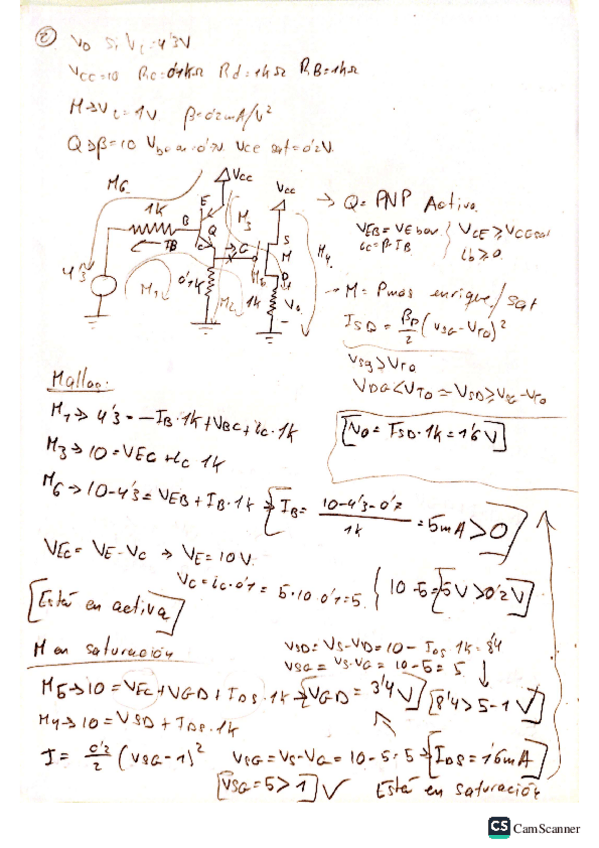 ② Vo si Vi=4'3V
Vcc=10 Rc=0'1kΩ Rd=1kΩ RB=1kΩ
M→Vt=1V β=0'2mA/V²
Q→β=10 Vbeon=0'7V VCE sat=0'2V
M6
Vcc
Vcc
→ Q= PNP Activa.
1K
E
B
Q
M3
IB
C
G
S
M
D
M4
4'3
M1
0'1k
M2
M5
1k
Vo
-
VEB=VEBon
ic=β·IB
VCE≥VCEsat
ib≥0
→ M= Pmos enrique./sat
ISD = βp/2 (VSG-VTO)²
Vsg>VTO
VDG<VTO = VSD≥VSG-VTO
Mallas:
M1→ 4'3 = -IB·1k+VBC+ic·1k
[Vo = ISD·1k=1'6V]
M3→10=VEC+ic 1k
M6→ 10-4'3=VEB+IB·1k → [IB= (10-4'3-0'7)/1k =5mA>0]
VEC=VE-VC → VE=10V
VC=ic·0'1= 5·10·0'1=5. { 10-5=[5V>0'2V]
[Está en activa]
M en saturación
VSD=VS-VD=10-IDS·1k=8'4
VSG=VS-VG=10-5=5
M5→10=VEC+VGD+IDS·1k→[VGD=3'4V] [8'4>5-1 √]
M4→10=VSD+IDS·1k
I= 0'2/2 (VSG-1)² VSG=VS-VG=10-5=5→[IDS=1'6mA]
[VSG=5>1] √ Está en saturación
CS CamScanner